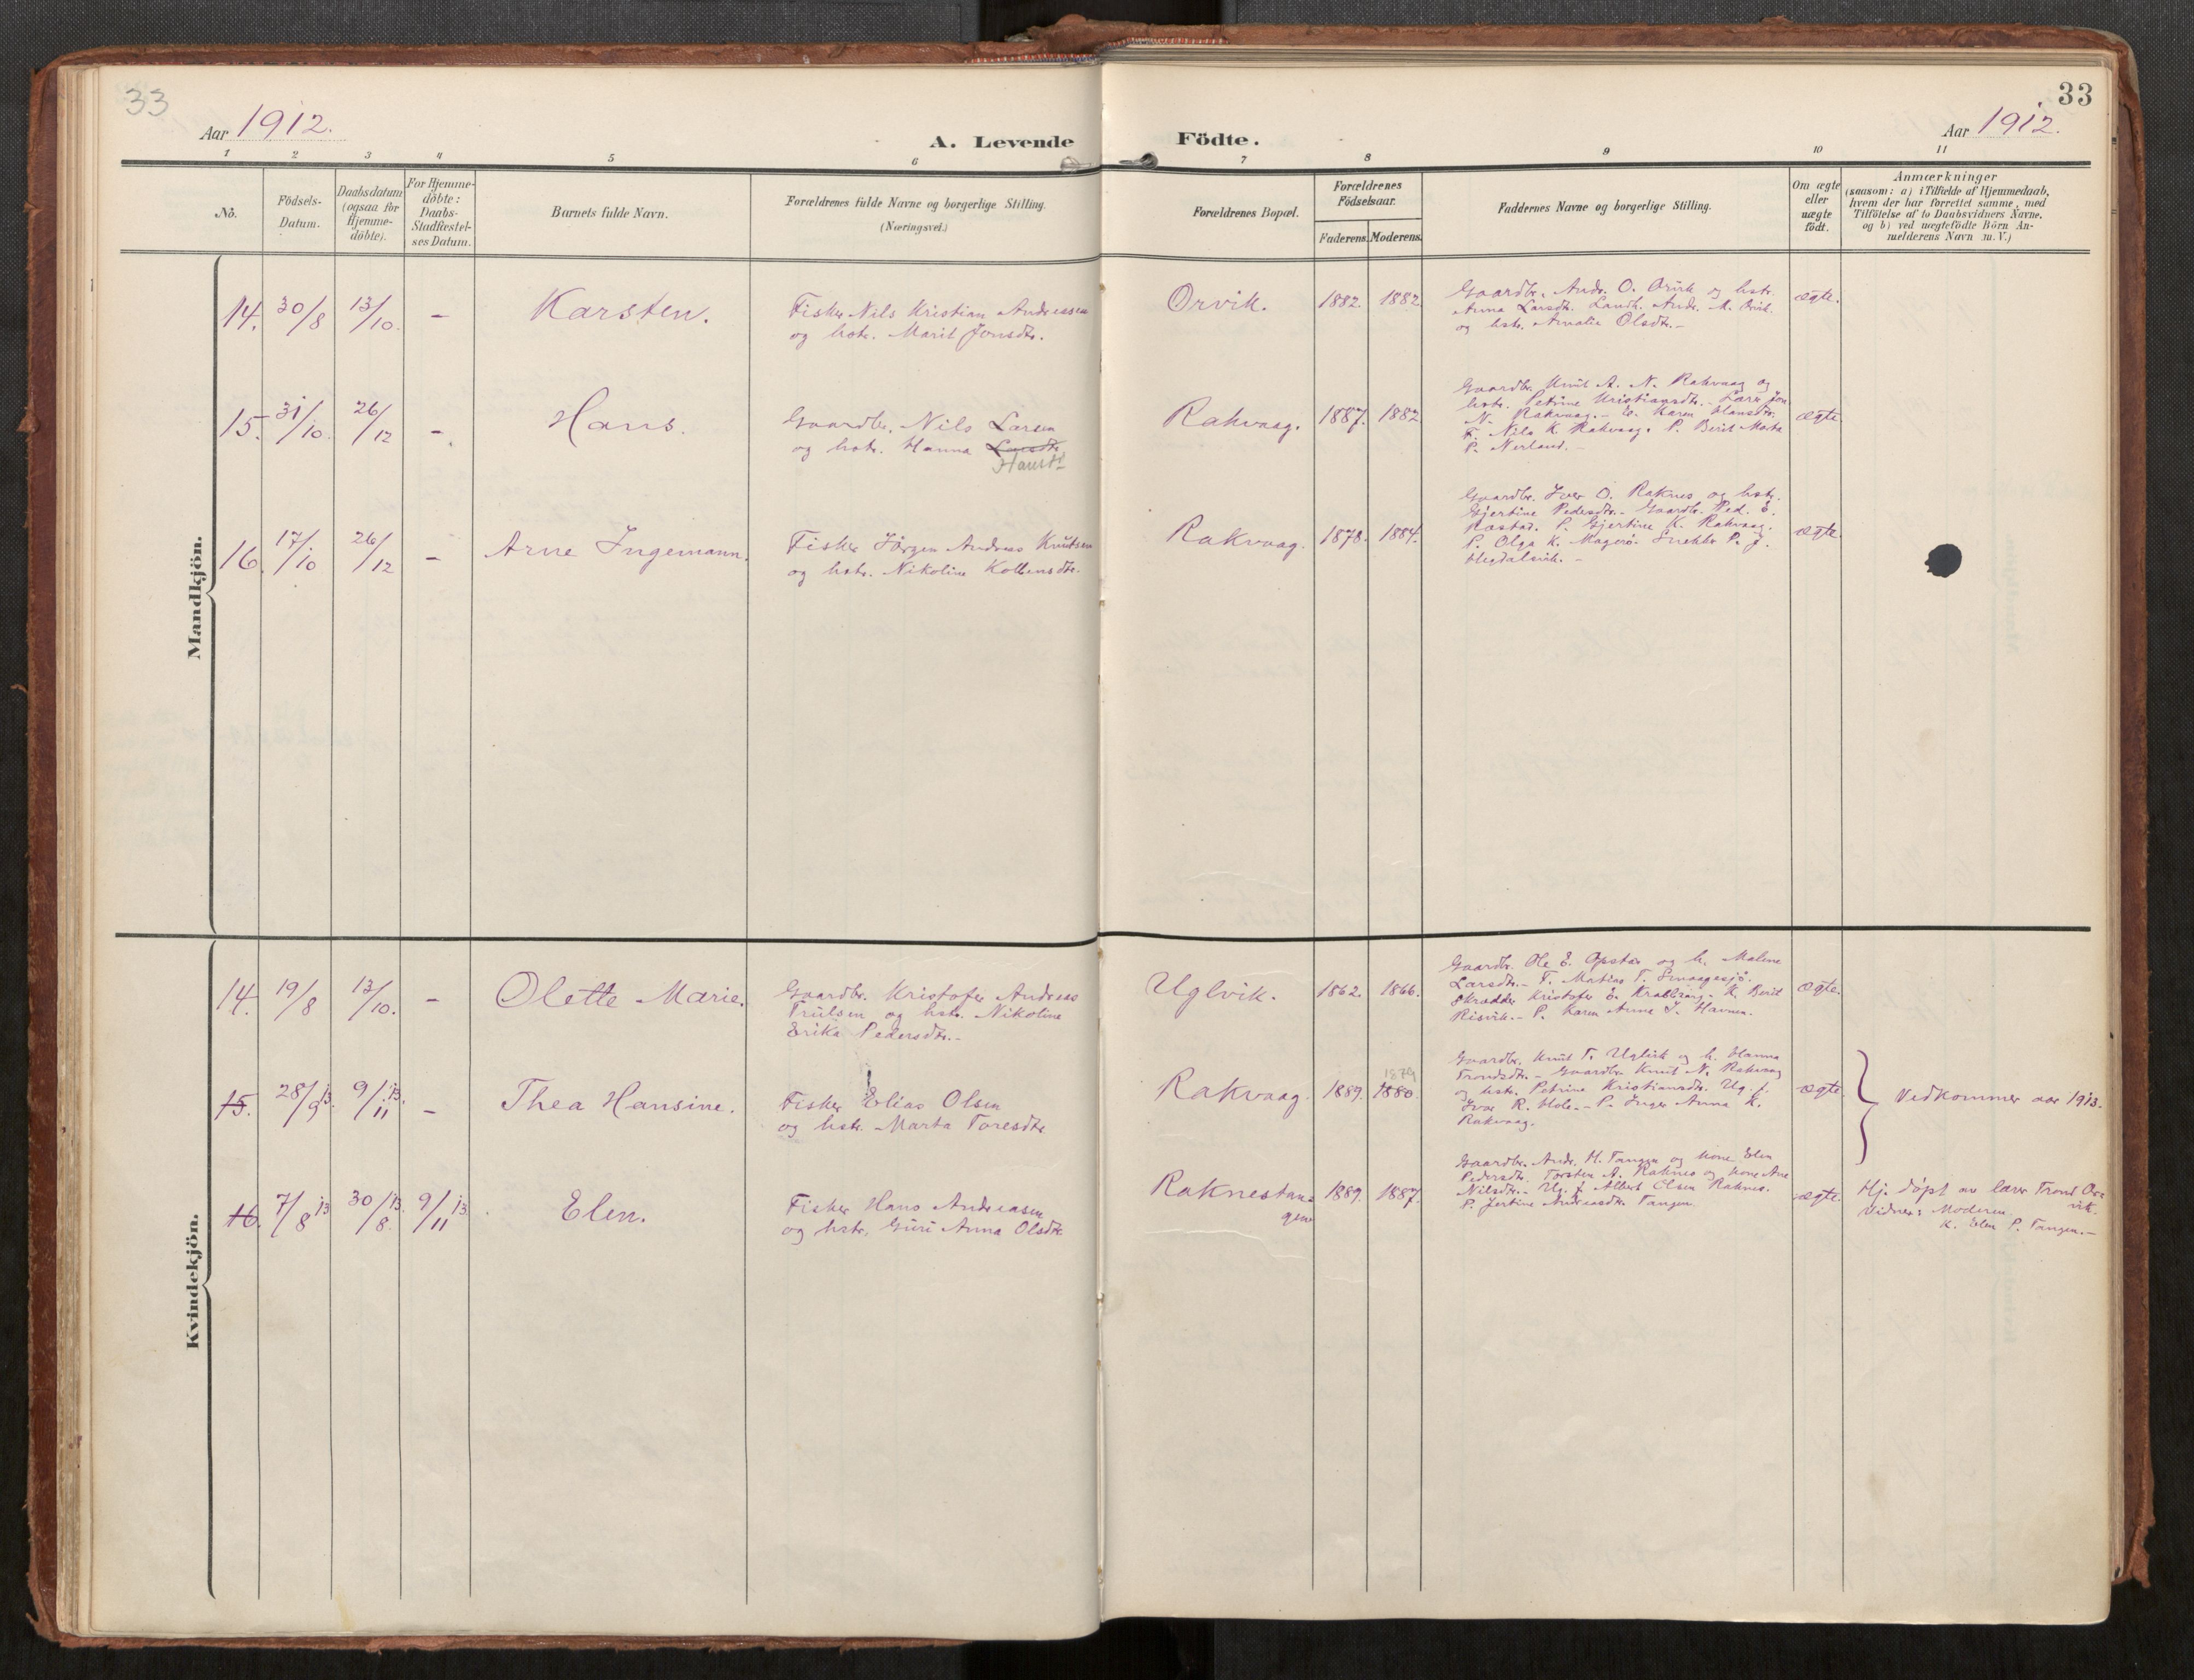 33
33
Aar 1912.
A. Levende Födte.
Aar 1912.
1 2 3 4 5 6 7 8 9 10 11
No.
Födsels-
Datum.
Daabsdatum
(ogsaa for
Hjemme-
döbte).
For Hjemme-
döbte:
Daabs-
Stadfæstel-
ses Datum.
Barnets fulde Navn.
Forældrenes fulde Navne og borgerlige Stilling.
(Næringsvei.)
Forældrenes Bopæl.
Forældrenes
Födselsaar.
Faderens. Moderens.
Faddernes Navne og borgerlige Stilling.
Om ægte
eller
uægte
födt.
Anmærkninger
(saasom: a) i Tilfælde af Hjemmedaab,
hvem der har forrettet samme, med
Tilföielse af to Daabsvidners Navne,
og b) ved uægtefödte Börn An-
melderens Navn m.V.)
Mandkjön.
14. 30/8 13/10. - Karsten.
Fisker Nils Kristian Andreasen
og hstr. Marit Jonsdtr.
Orvik. 1882. 1882.
Gaardbr. Andr. O. Orvik og hstr.
Anna Larsdtr. Landh. Andr. M. Orvik.
og hstr. Amalie Olsdtr.-
ægte.
15. 31/10. 26/12 - Hans.
Gaardbr. Nils Larsen
og hstr. Hanna Larsdtr
Hansdt
Rakvaag. 1887. 1882
Gaardbr. Knut A. N. Rakvaag og
hstr. Petrine Kristiansdtr.- Lærer Jon
N. Rakvaag.- E. Karen Hansdtr.
F. Nils K. Rakvaag. P. Berit Marta
P. Nerland.-
ægte
16. 17/10 26/12 - Arne Ingemann.
Fisker Jörgen Andreas Knutsen
og hstr. Nikoline Kolbensdtr.
Rakvaag. 1878. 1884.
Gaardbr. Iver O. Raknes og hstr.
Gjertine Pedersdtr.- Gaardbr. Ped. E.
Rastad. P. Gjertine K. Rakvaag.
P. Olga K. Magerö. Snekker P. J.
Hegdalsvik.-
ægte
Kvindekjön.
14. 19/8 13/10. - Olette Marie.
Gaardbr. Kristofer Andreas
Trulsen og hstr. Nikoline
Erika Pedersdtr.-
Uglvik. 1862. 1866.
Gaardbr. Ole E. Opstad og h. Malene
Larsdtr.- F. Matias T. Smaagesjö.
Skrædder Kristofer E. K. Berit
Risvik.- P. Karen Anne J. Havnen.
ægte.
15. 28/9 13. 9/11 13. - Thea Hansine.
Fisker Elias Olsen
og hstr. Marta Toresdtr
Rakvaag. 1889. 1880. 1879
Gaardbr. Knut T. Uglvik og h. Hanna
Trondsdtr.- Gaardbr. Knut N. Rakvaag
og hstr. Petrine Kristiansdtr. Ug. f.
Ivar R. Hole.- P. Inger Anna K.
Rakvaag.
ægte.
Vedkommer aar 1913.
16. 7/8 13 30/8 13. 9/11 13 Elen.
Fisker Hans Andreasen
og hstr. Guri Anna Olsdtr
Raknestan=
gen 1889. 1887.
Gaardbr. Andr. H. Tangen og kone Elen
Pedersdtr. Torsten A. Raknes og kone Ane
Nilsdtr.- Ug. f. Albert Olsen Raknes.
P. Jertine Andreasdtr. Tangen.
ægte.
Hj. döpt av lærer Trond Or=
vik.
Vidner: Moderen.
K. Elen P. Tangen.-